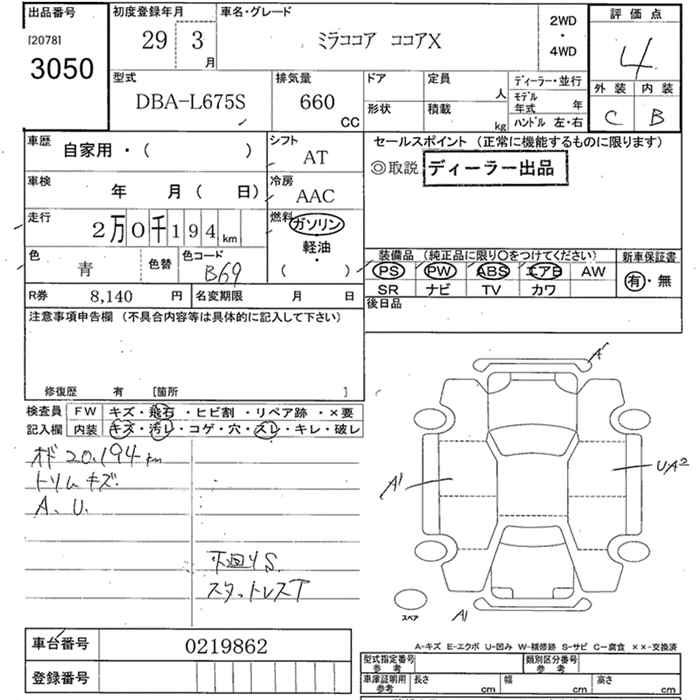 出品番号
[2078]
3050
初度登録年月
29 3
月
車名・グレード
ミラココア ココアX
2WD
・
4WD
評価点
4
外装 内装
C B
型式
DBA-L675S
排気量
660
CC
ドア
形状
定員
人
積載
kg
ディーラー・並行
モデル
年式 年
ハンドル 左・右
車歴
自家用・( )
シフト
AT
車検
年 月( 日)
冷房
AAC
走行
2万0千194km
燃料
ガソリン
・
軽油
( )
色
青
色替
色コード
B69
R券 8,140 円
名変期限 月 日
セールスポイント (正常に機能するものに限ります)
◎取説 ディーラー出品
装備品 (純正品に限り○をつけてください)
PS PW ABS エアB AW
SR ナビ TV カワ
新車保証書
有・無
後日品
注意事項申告欄 (不具合内容等は具体的に記入して下さい)
修復歴 有 [箇所 ]
検査員 FW キズ・飛石・ヒビ割・リペア跡・×要
記入欄 内装 キズ・汚レ・コゲ・穴・スレ・キレ・破レ
オド 20,194km
トリムキズ
A、U.
下回りS
スタットレスT
A'
A1
UA2
スペア
A1
車台番号 0219862
登録番号
A-キズ E-エクボ U-凹み W-補修跡 S-サビ C-腐食 ××-交換済
型式指定番号
参考
類別区分番号
参考
車庫証明用
参考
長さ cm
幅 cm
高さ cm